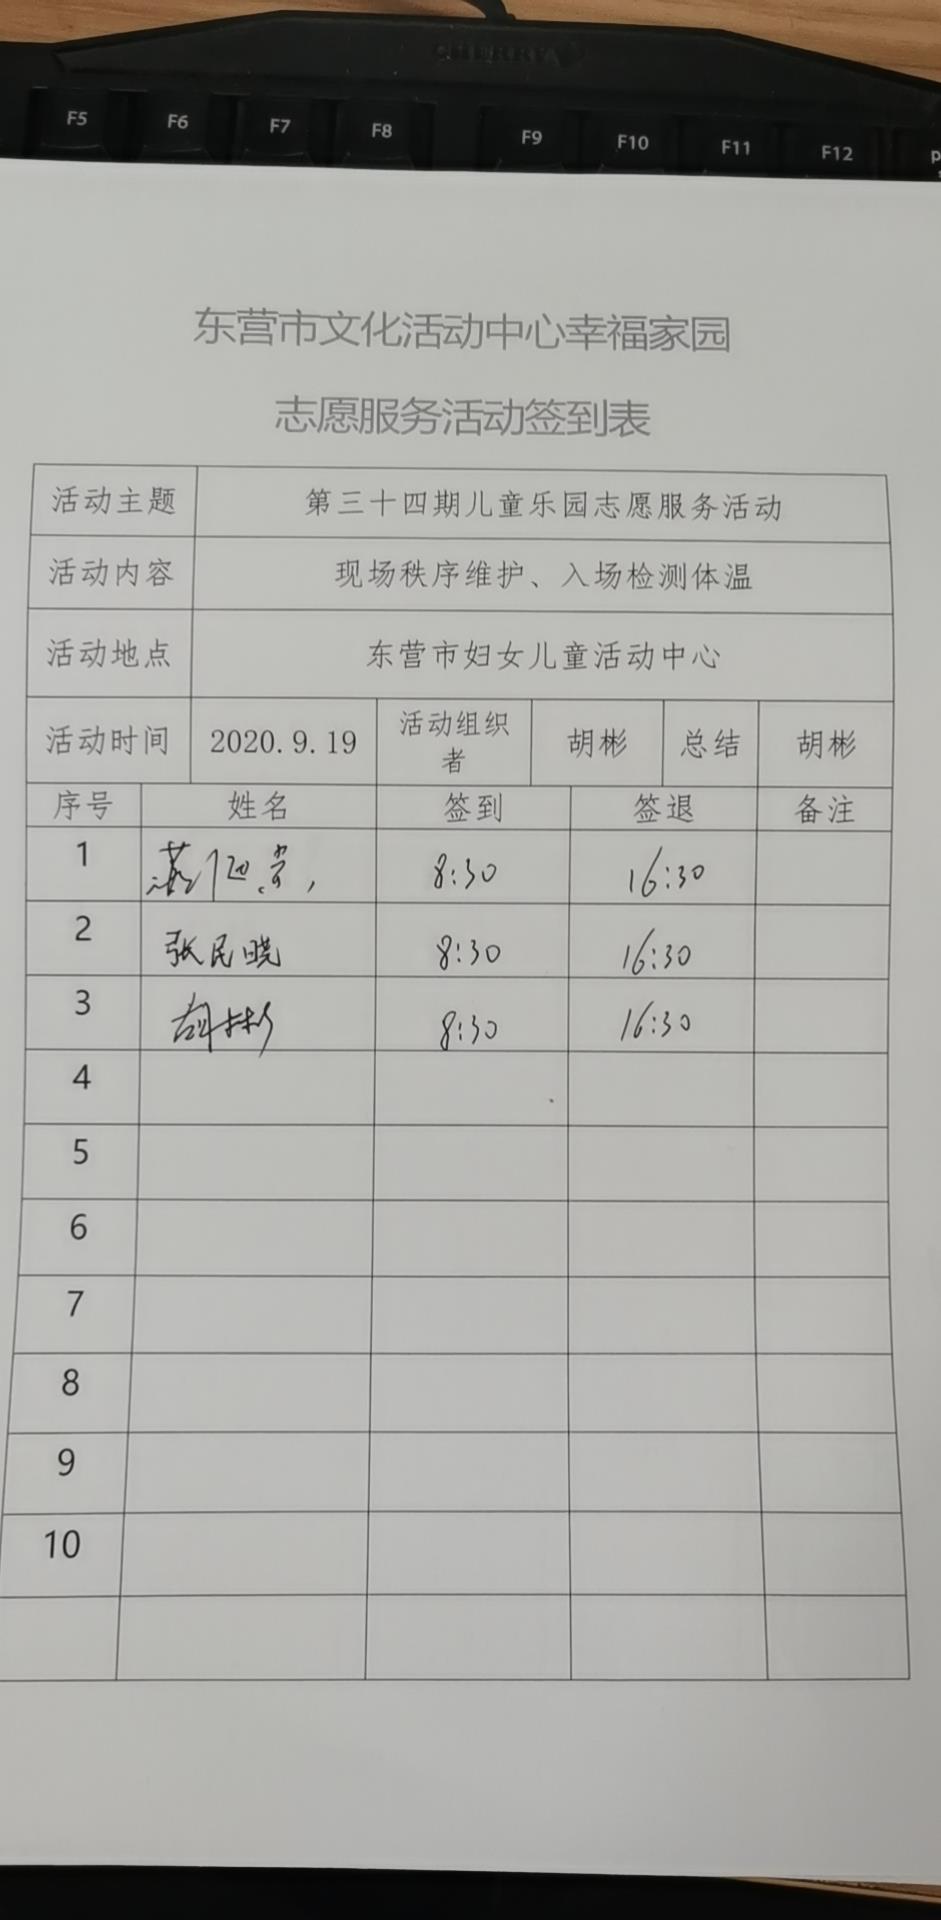 CHERRY
F5 F6 F7 F8 F9 F10 F11 F12
东营市文化活动中心幸福家园
志愿服务活动签到表
活动主题 第三十四期儿童乐园志愿服务活动
活动内容 现场秩序维护、入场检测体温
活动地点 东营市妇女儿童活动中心
活动时间 2020.9.19 活动组织者 胡彬 总结 胡彬
序号 姓名 签到 签退 备注
1 8:30 16:30
2 张民晓 8:30 16:30
3 胡彬 8:30 16:30
4
5
6
7
8
9
10